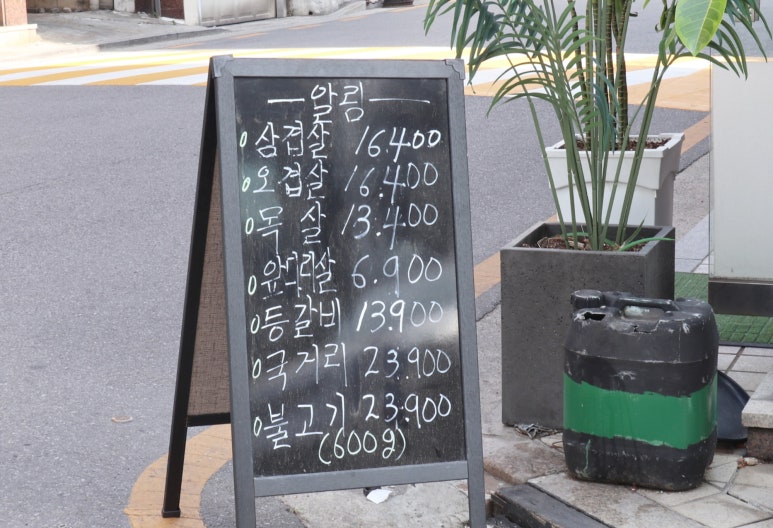 알림
삼겹살 16.400
오겹살 16.400
목살 13.400
앞다리살 6.900
등갈비 13.900
국거리 23.900
불고기 23.900
(600g)